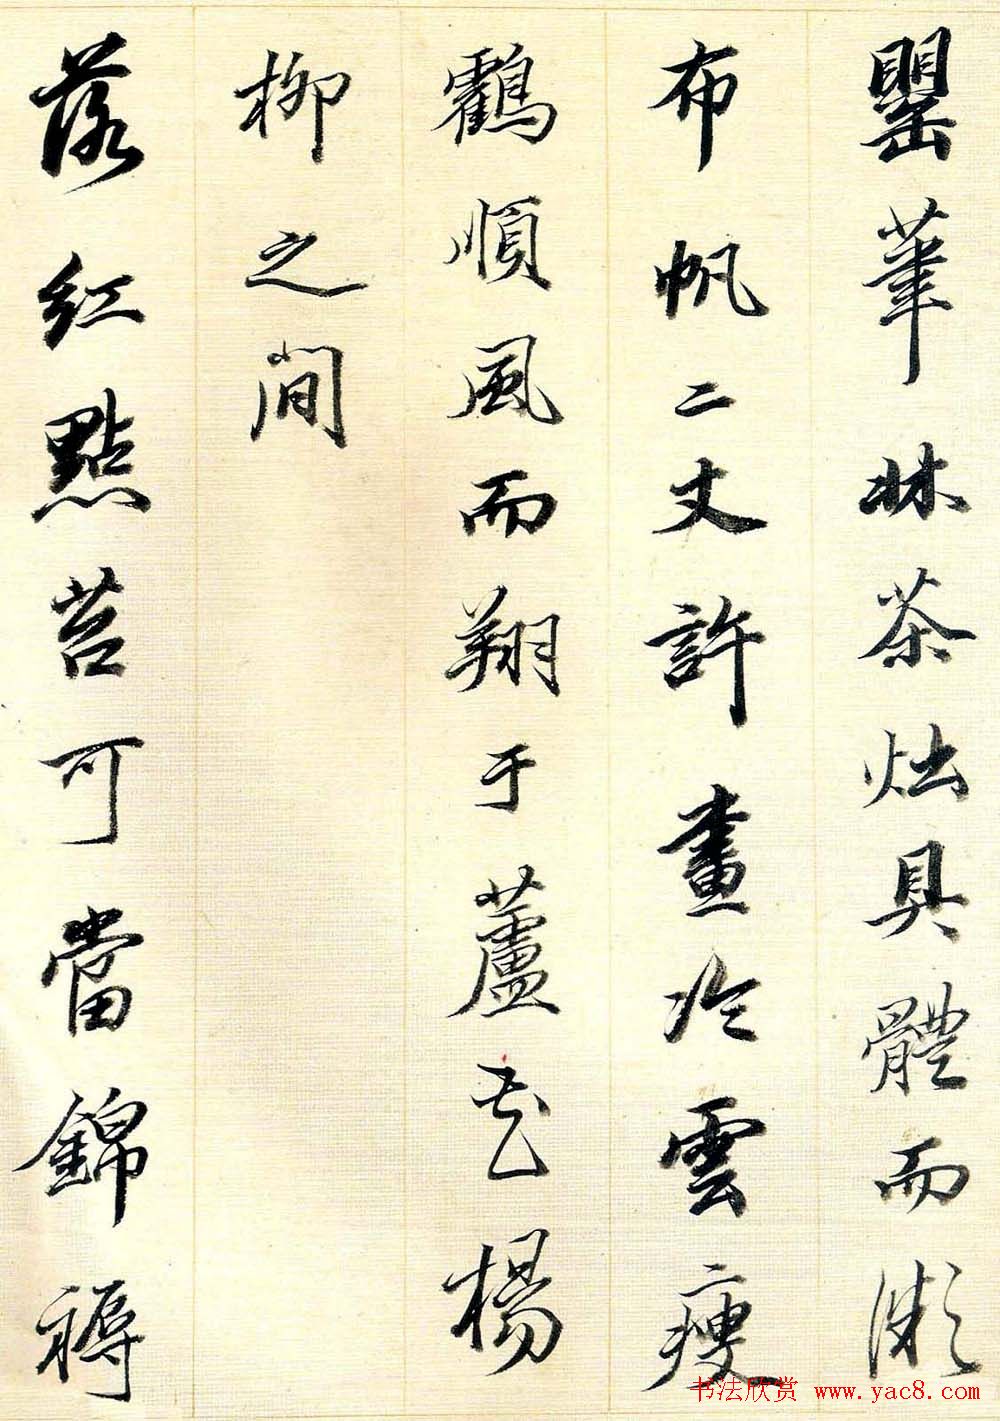 罌筆牀茶㶥具體而微
布帆二丈許畫冷雲瘦
鸖順風而翔于蘆花楊
柳之間
落紅點苔可當錦褥
书法欣赏 www.yac8.com